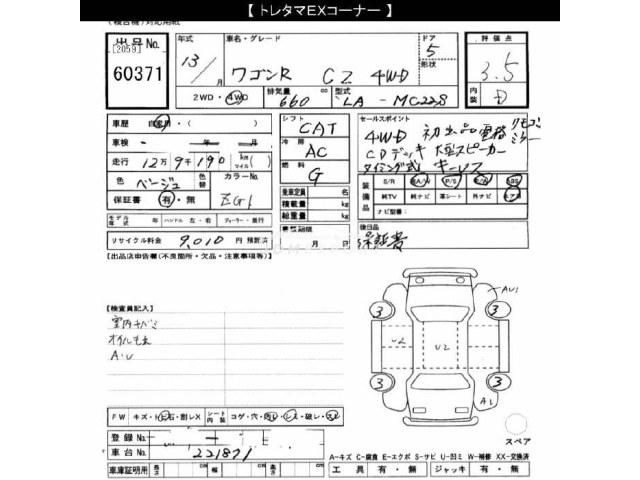 【 トレタマEXコーナー 】
出品No. [2059] 60371
年式 13/ 月
車名・グレード ワゴンR C2 4WD
ドア 5 形状
評価点 3.5
内装 D
2WD・4WD
排気量 660 cc
型式 LA - MC22S
車歴 自家用・( )
シフト CAT
セールスポイント
4WD 初出品 電格リモコンミラー
CDデッキ 大型スピーカー
タイミング式 キーレス
車検 - 年 - 月
冷房 AC
走行 12万9千190 km マイル ( )
燃料 G
色 ベージュ 色替
カラーNo. ZG1
装備品 S/R A/W P/S P/W ABS
純TV 純ナビ 革シート 外ナビ エアB
ナビ型番:
保証書 有・無
乗車定員 名
積載量 kg
総重量 kg
モデル年式 年 ハンドル 左・右 ディーラー・並行
リサイクル料金 9,010 円 預託済
月 日
後日品 保証書
【出品店申告欄(不良箇所・欠品・注意事項等)】
【検査員記入】
室内キバミ
オイルもれ
A・U
AU1
3 3
U2 U2
3 3
A1
スペア
FW キズ・ト石・割レX シート内装 コゲ・穴・汚レ・シミ・破レ・スレ
登録No.
車台No. 221871
A-キズ C-腐食 E-エクボ S-サビ U-凹ミ W-補修 XX-交換済
車庫証明用 長さ cm 幅 cm 高さ cm
工具 有・無 ジャッキ 有・無